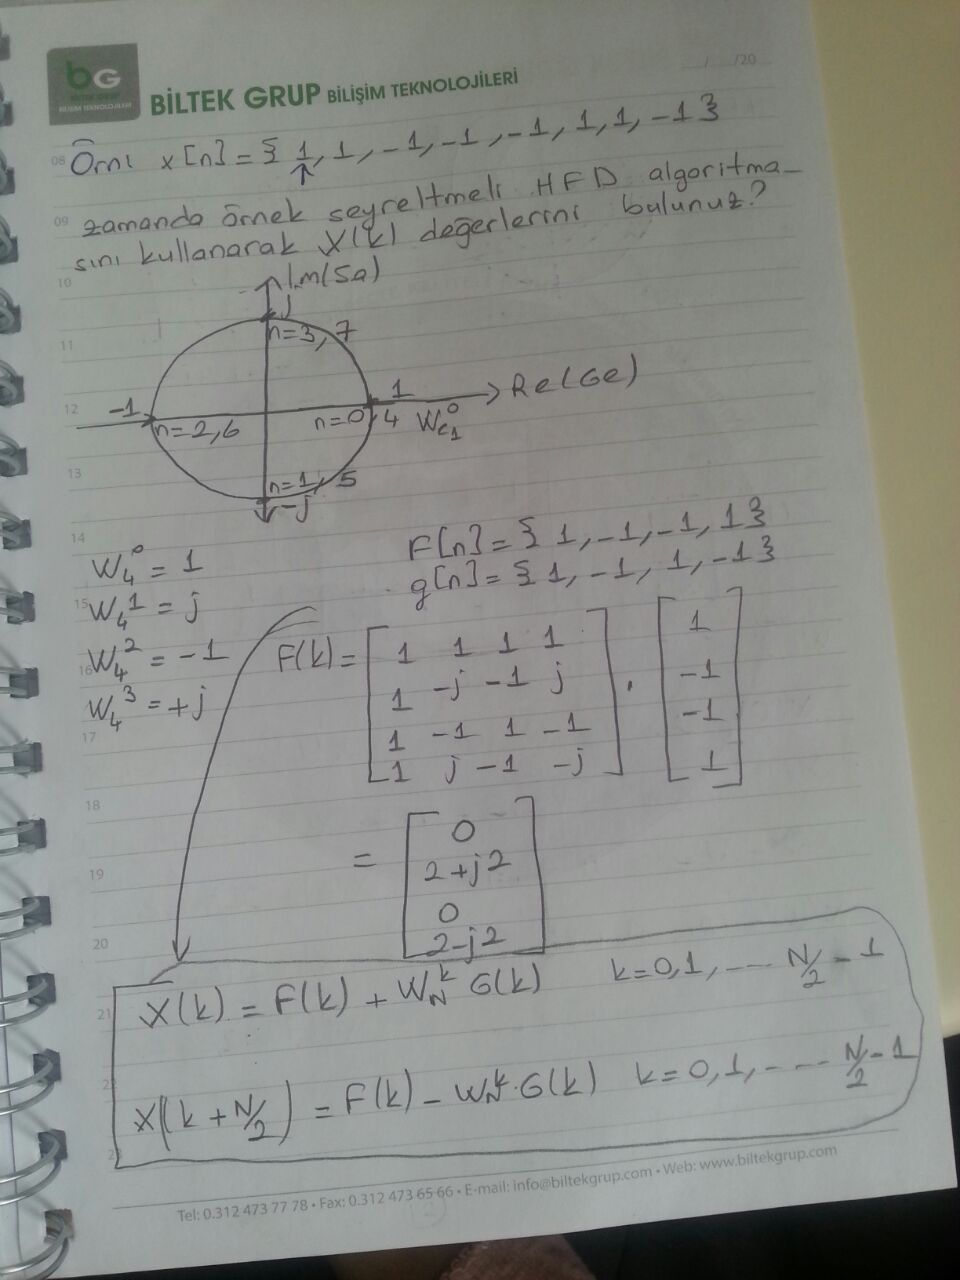 bG
BİLTEK GRUP
BİLİŞİM TEKNOLOJİLERİ
BİLTEK GRUP BİLİŞİM TEKNOLOJİLERİ
/ /20
08 Örn: x[n] = { 1, 1, -1, -1, -1, 1, 1, -1 }
↑
09 zamanda örnek seyreltmeli HFD algoritma-
sını kullanarak X(k) değerlerini bulunuz?
10 Im(Sa)
j
11 n=3, 7
12 -1 1 Re(Ge)
n=2,6 n=0,4
13 n=1, 5
-j
14 F[n] = { 1, -1, -1, 1 }
W₄⁰ = 1 g[n] = { 1, -1, 1, -1 }
15 W₄¹ = j
16 W₄² = -1
W₄³ = +j
17
F(k) = [ 1 1 1 1 ] . [ 1 ]
[ 1 -j -1 j ] [ -1 ]
[ 1 -1 1 -1 ] [ -1 ]
[ 1 j -1 -j ] [ 1 ]
18
= [ 0 ]
19 [ 2+j2 ]
[ 0 ]
20 [ 2-j2 ]
21 X(k) = F(k) + W_N^k G(k) k=0,1, ---- N/2 - 1
22 X(k + N/2) = F(k) - W_N^k . G(k) k=0,1, ---- N/2 - 1
Tel: 0.312 473 77 78 • Fax: 0.312 473 65 66 • E-mail: info@biltekgrup.com • Web: www.biltekgrup.com